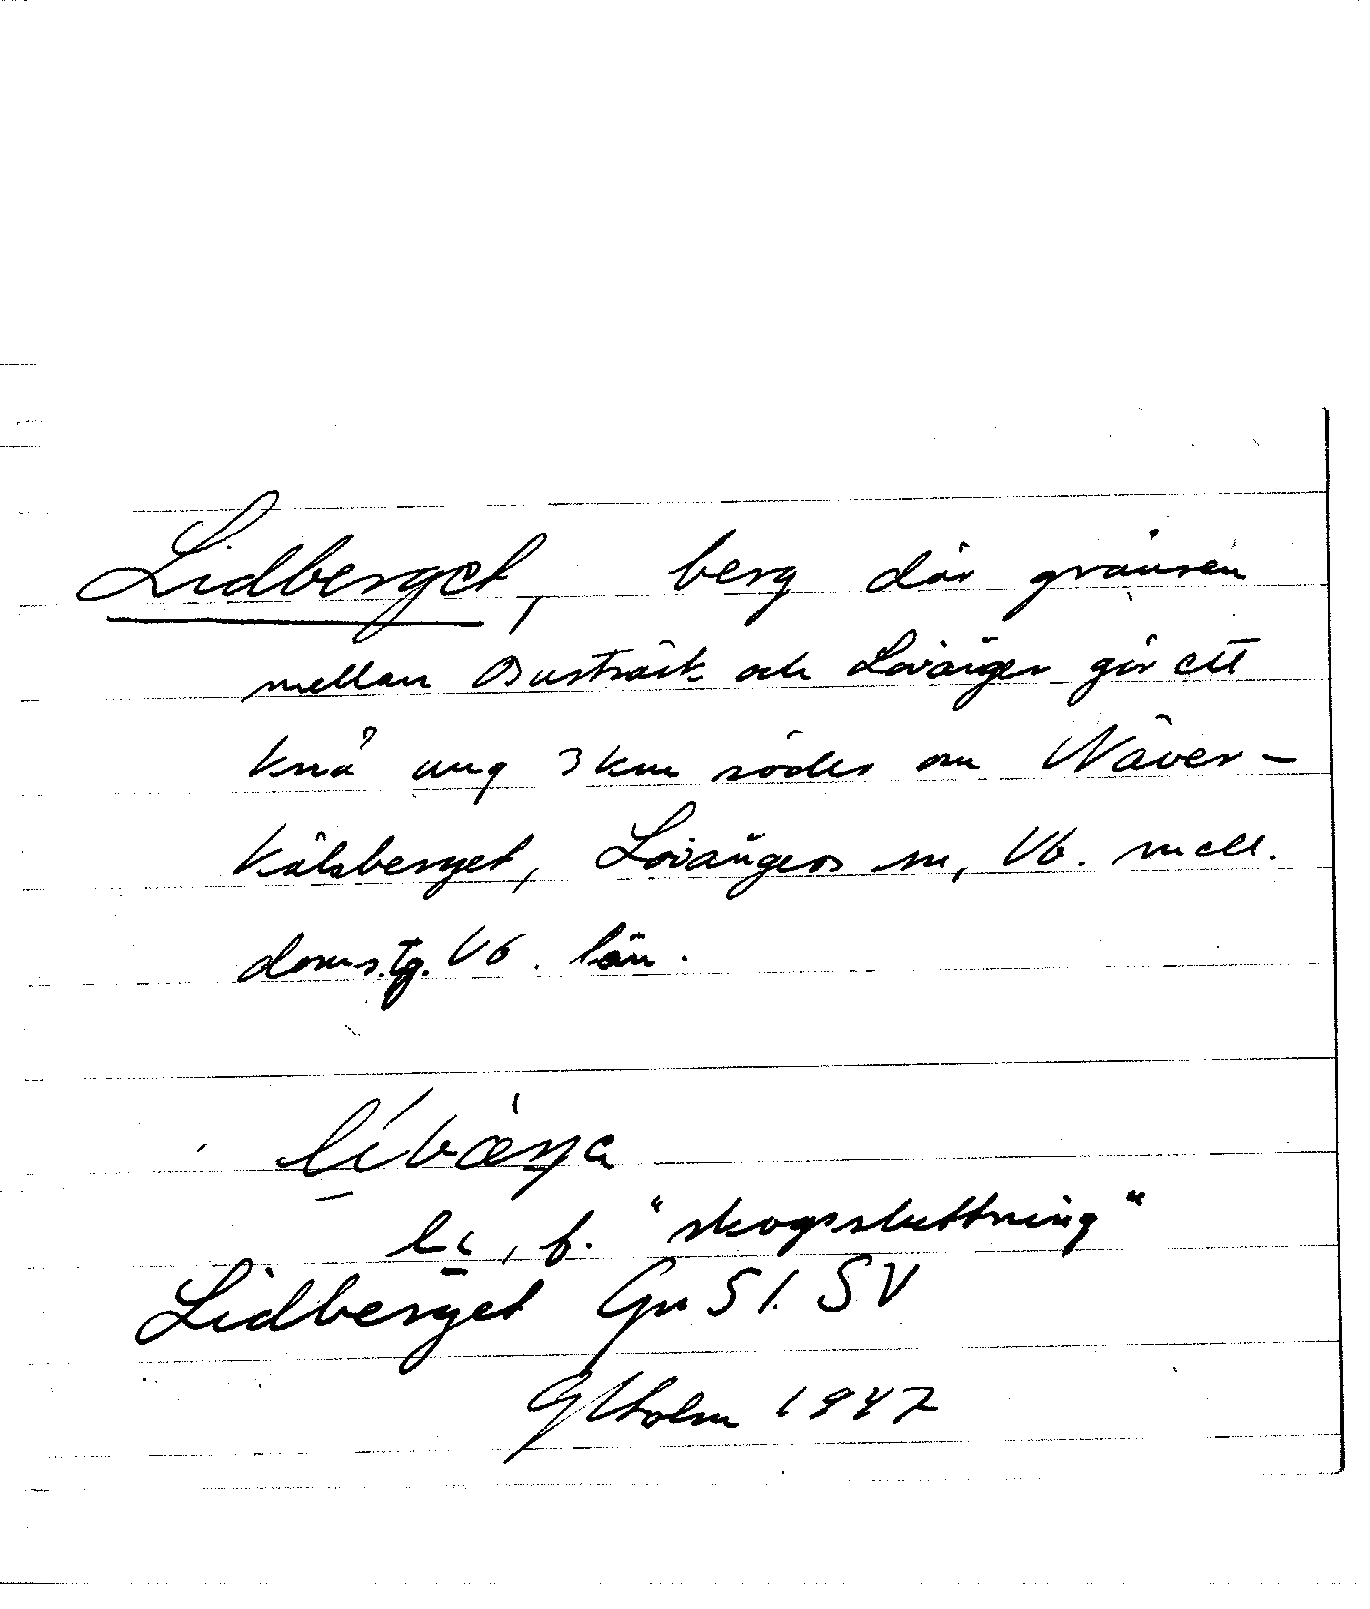 Lidberget, berg där gränsen
mellan Burträsk och Lövånger gör ett
knä ung 3 km söder om Näver-
kälsberget, Lövångers sn, Vb. mell.
doms.tg. Vb. län.
li, f. "skogssluttning"
Lidberget Gn Sl. SV
GHolm 1947